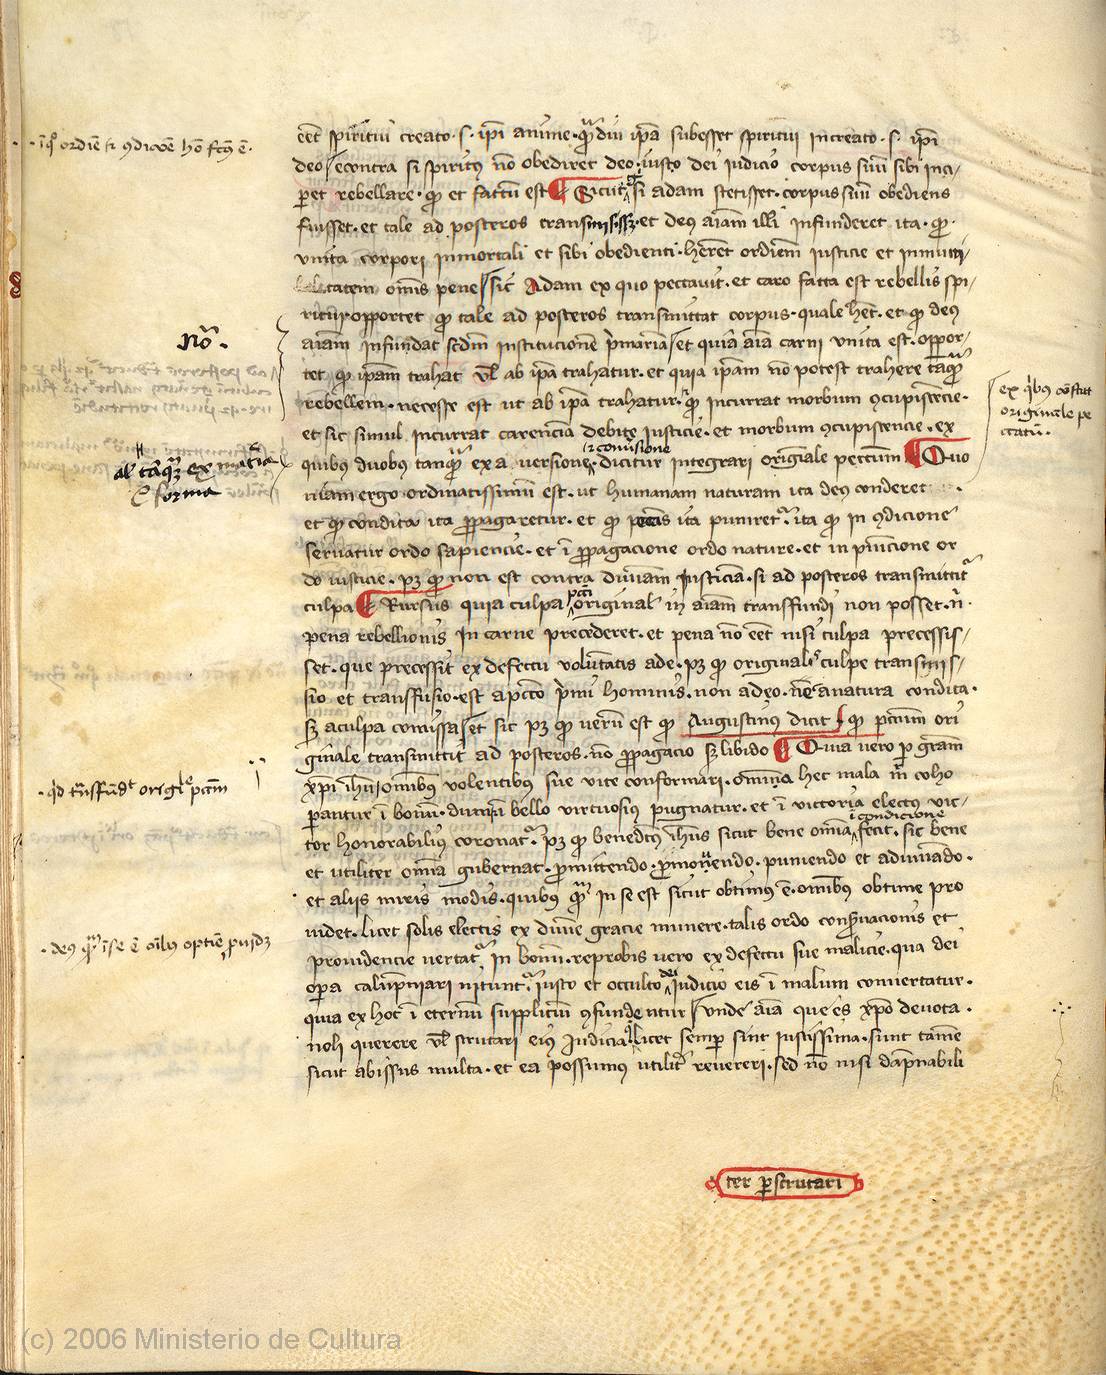 eēt spiritui creato · s · ipi anime · qͣdiu ipā subesset spiritui increato · s · ipi
deo econtra si spiritus nō obediret deo · iusto dei iudicio corpus suū sibi inci/
peret rebellare · qđ et factū est ¶ Sicut si adam stetisset · corpus suū obediens
fuisset · et tale ad posteros transmisisset · et deus aīam illi infunderet ita · qđ ·
unita corpori inmortali et sibi obedienti · hēret ordinem iusticie et inmuni/
tatem omīs pene sic Adam ex quo peccavit · et caro facta est rebellis spi/
ritui · opportet qđ tale ad posteros transmittat corpus · quale hēt · et qđ deus
aīam infundat scđm institucionē primariā et quia aīa carni unita est · oppor/
tet qđ ipam trahat vel ab ipā trahatur · et quia ipam nō potest trahere tāqͣ
rebellem · necesse est ut ab ipā trahatur · qđ incurrat morbum ɔcupiscēcie ·
et sic simul incurrat carenciā debite iusticie · et morbum ɔcupiscencie · ex
quibus duobus tanqͣ ex a versione et conuersione dicitur integrari originale peccatum ¶ Quo
niam ergo ordinatissimū est · ut humanam naturam ita deus conderet ·
et qđ condita ita propagaretur · et qđ peccās ita puniretur · ita qđ in ɔdicione
servatur ordo sapiencie · et ī propagacione ordo nature · et in punicione or
do iusticie · pȝ qđ non est contra divinam iusticiā · si ad posteros transmittitur
culpa ¶ Rursus quia culpa originał in aīam transfundi non posset · nī ·
pena rebellionis in carne precederet · et pena nō eēt nisi culpa precessis/
set · que precessit ex defectu voluntatis ade · pȝ qđ originalis culpe transmis/
sio et transfusio · est a peccato primi hominis · non a deo · nec a natura condita ·
sȝ a culpa comissa et sic pȝ qđ verū est qđ Augustinus dicit qđ pctum ori
ginale transmittit ad posteros · nō propagacio sȝ libido ¶ Quia vero per gratiam
xpi ihu omibus volentibus sue vite conformari · omnia hec mala
virtuosius pugnatur · et ī victoria electus vic/
tor honorabilius coronatur · pȝ qđ benedictus ihus sicut bene omia ī condicione fecit · sic bene
et utiliter omia gubernat · permittendo · permonendo · puniendo et adiuvando ·
et aliis miris modis · quibus qͣ in se est sicut obtimus ē · omibus obtime pro
videt · licet solis electis ex divine gracie munere · talis ordo conservacionis et
providencie vertatur in bonū · reprobis vero ex defectu sue malicie · qua dei
opera calumpniari nituntur · iusto et occulto dei iudicio eis ī malum convertatur ·
quia ex hoc ī eternū suppliciū ɔfunduntur Unde aīa que es xpo devota ·
noli querere vel scrutari eius iudicia · licet semper sint iustissima · sunt tamē
sicut abissus multa · et ea possumus utiliter revereri · sed nō nisi dāpnabili
ter perscrutari
ī quo ordiē et ɔdicōe hō fcūs ē ·
Nō ·
al tāqȝ ex materia
et forma
ex quibus cōstat
originale pe
ccatū ·
· qđ trāsfūdit origīale pctm
· deus qͣ ī se ē oībus optie puidȝ
(c) 2006 Ministerio de Cultura